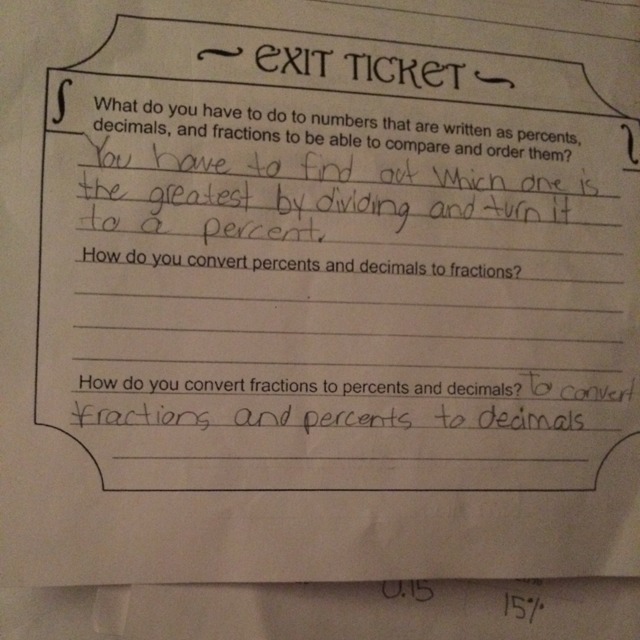 EXIT TICKET
What do you have to do to numbers that are written as percents,
decimals, and fractions to be able to compare and order them?
You have to find out which one is
the greatest by dividing and turn it
to a percent.
How do you convert percents and decimals to fractions?
How do you convert fractions to percents and decimals? To convert
fractions and percents to decimals
0.15
15%